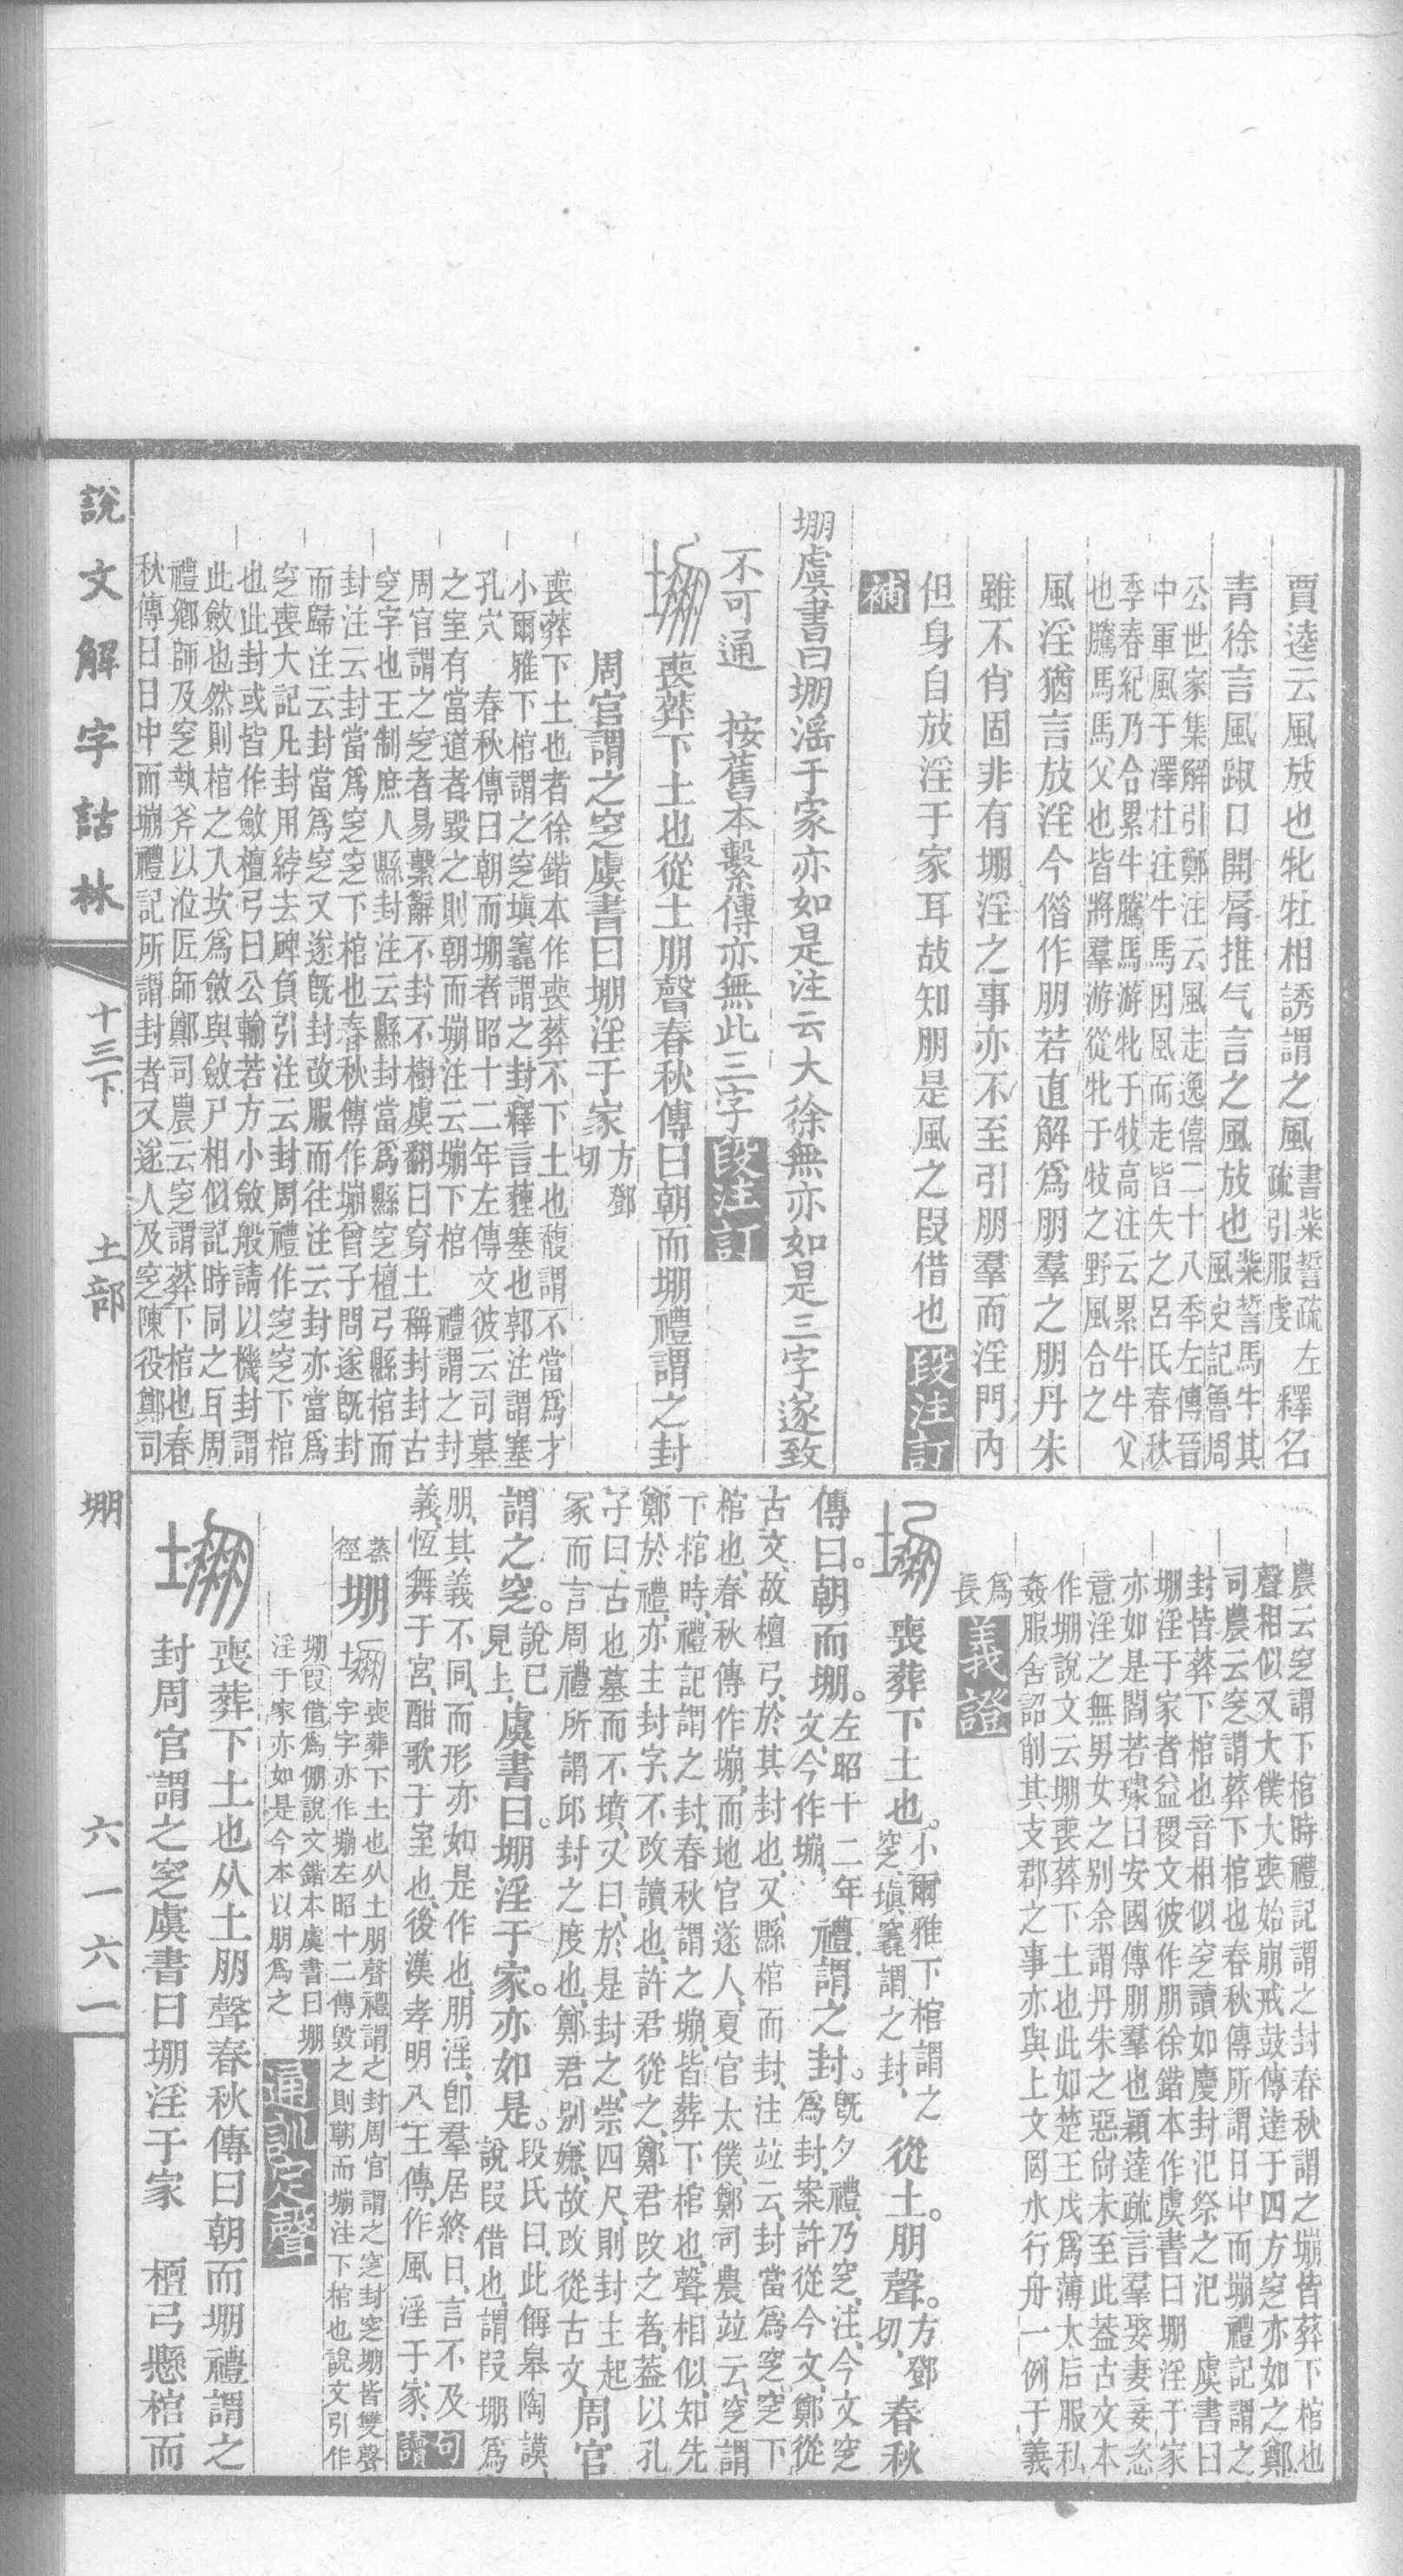 賈逵云風放也牝牡相誘謂之風書柴誓疏左疏引服虔釋名
青徐言風踧口開脣推气言之風放也柴誓馬牛其風史記魯周
公世家集解引鄭注云風走逸僖二十八年左傳晉
中軍風于澤杜注牛馬因風而走皆失之呂氏春秋
季春紀乃合累牛騰馬游牝于牧高注云累牛牛父
也騰馬馬父也皆將羣游從牝于牧之野風合之
風淫猶言放淫今偺作朋若直解爲朋羣之朋丹朱
雖不肖固非有堋淫之事亦不至引朋羣而淫門內
但身自放淫于家耳故知朋是風之叚借也段注訂
補
堋虞書曰堋淫于家亦如是注云大徐無亦如是三字遂致
不可通　按舊本繫傳亦無此三字段注訂
喪葬下土也從土朋聲春秋傳曰朝而堋禮謂之封
周官謂之窆虞書曰堋淫于家方鄧切
喪葬下土也者徐鍇本作喪葬不下土也馥謂不當爲才
小爾雅下棺謂之窆塡竁謂之封釋言薶塞也郭注謂塞
孔穴　春秋傳曰朝而堋者昭十二年左傳文彼云司墓
之室有當道者毀之則朝而塴注云塴下棺　禮謂之封
周官謂之窆者易繫辭不封不樹虞翻曰穿土稱封封古
窆字也王制庶人縣封注云縣封當爲縣窆檀弓縣棺而
封注云封當爲窆窆下棺也春秋傳作塴曾子問遂既封
而歸注云封當爲窆又遂既封改服而往注云封亦當爲
窆喪大記凡封用綍去碑負引注云封周禮作窆窆下棺
也此封或皆作斂檀弓曰公輸若方小斂般請以機封謂
此斂也然則棺之入坎爲斂與斂尸相似記時同之耳周
禮鄉師及窆執斧以涖匠師鄭司農云窆謂葬下棺也春
秋傳曰日中而塴禮記所謂封者又遂人及窆陳役鄭司
農云窆謂下棺時禮記謂之封春秋謂之塴皆葬下棺也
聲相似又大僕大喪始崩戒鼓傳達于四方窆亦如之鄭
司農云窆謂葬下棺也春秋傳所謂日中而塴禮記謂之
封皆葬下棺也音相似窆讀如慶封氾祭之氾　虞書曰
堋淫于家者益稷文彼作朋徐鍇本作虞書曰堋淫于家
亦如是閻若璩曰安國傳朋羣也穎達疏言羣娶妻妾恣
意淫之無男女之別余謂丹朱之惡尙未至此葢古文本
作堋說文云堋喪葬下土也此如楚王戊爲薄太后服私
姦服舍詔削其支郡之事亦與上文罔水行舟一例于義
爲長義證
喪葬下土也。小爾雅下棺謂之窆、塡竁謂之封、從土。朋聲。方鄧切、春秋
傳曰。朝而堋。左昭十二年文、今作塴、禮謂之封。既夕禮、乃窆、注、今文窆爲封、案許從今文、鄭從
古文、故檀弓、於其封也、又、縣棺而封、注竝云、封當爲窆、窆下
棺也、春秋傳作塴、而地官遂人、夏官太僕、鄭司農竝云、窆謂
下棺時、禮記謂之封、春秋謂之塴、皆葬下棺也、聲相似、知先
鄭於禮、亦主封字、不改讀也、許君從之、鄭君改之者、葢以孔
子曰、古也墓而不墳、又曰、於是封之、崇四尺、則封主起
冢而言周禮所謂邱封之度也、鄭君別嫌、故改從古文、周官
謂之窆。說已見上、虞書曰。堋淫于家。亦如是。段氏曰、此偁皋陶謨、說叚借也、謂叚堋爲
朋、其義不同、而形亦如是作也、朋淫、卽羣居終日、言不及
義、恆舞于宮、酣歌于室也、後漢孝明八王傳、作風淫于家、句讀
蒸徑堋喪葬下土也从土朋聲禮謂之封周官謂之窆封窆堋皆雙聲
字字亦作塴左昭十二傳毀之則朝而塴注下棺也說文引作
堋叚借爲倗說文鍇本虞書曰堋
淫于家亦如是今本以朋爲之通訓定聲
喪葬下土也从土朋聲春秋傳曰朝而堋禮謂之
封周官謂之窆虞書曰堋淫于家　檀弓懸棺而
說文解字詁林　十三下　土部　堋　六一六一